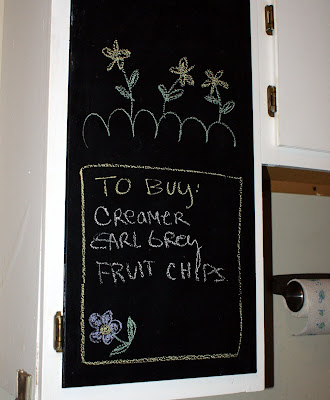 TO BUY:
CREAMER
EARL GREY
FRUIT CHIPS.